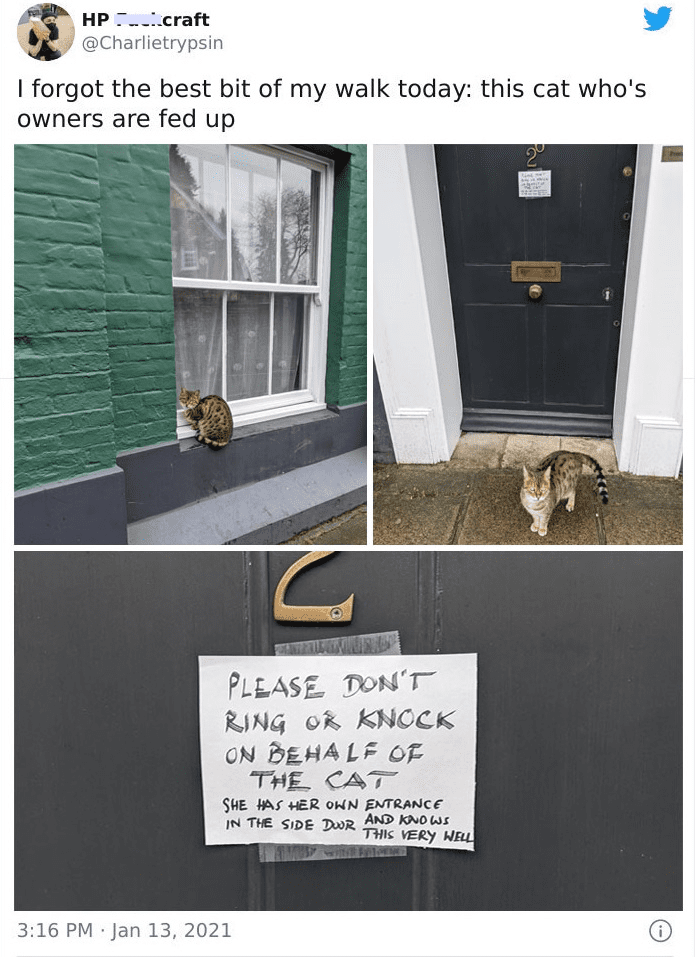 HP craft
@Charlietrypsin
I forgot the best bit of my walk today: this cat who's
owners are fed up
2
2
PLEASE DON'T
RING OR KNOCK
ON BEHALF OF
THE CAT
SHE HAS HER OWN ENTRANCE
IN THE SIDE DOOR AND KNOWS
THIS VERY WELL
3:16 PM · Jan 13, 2021